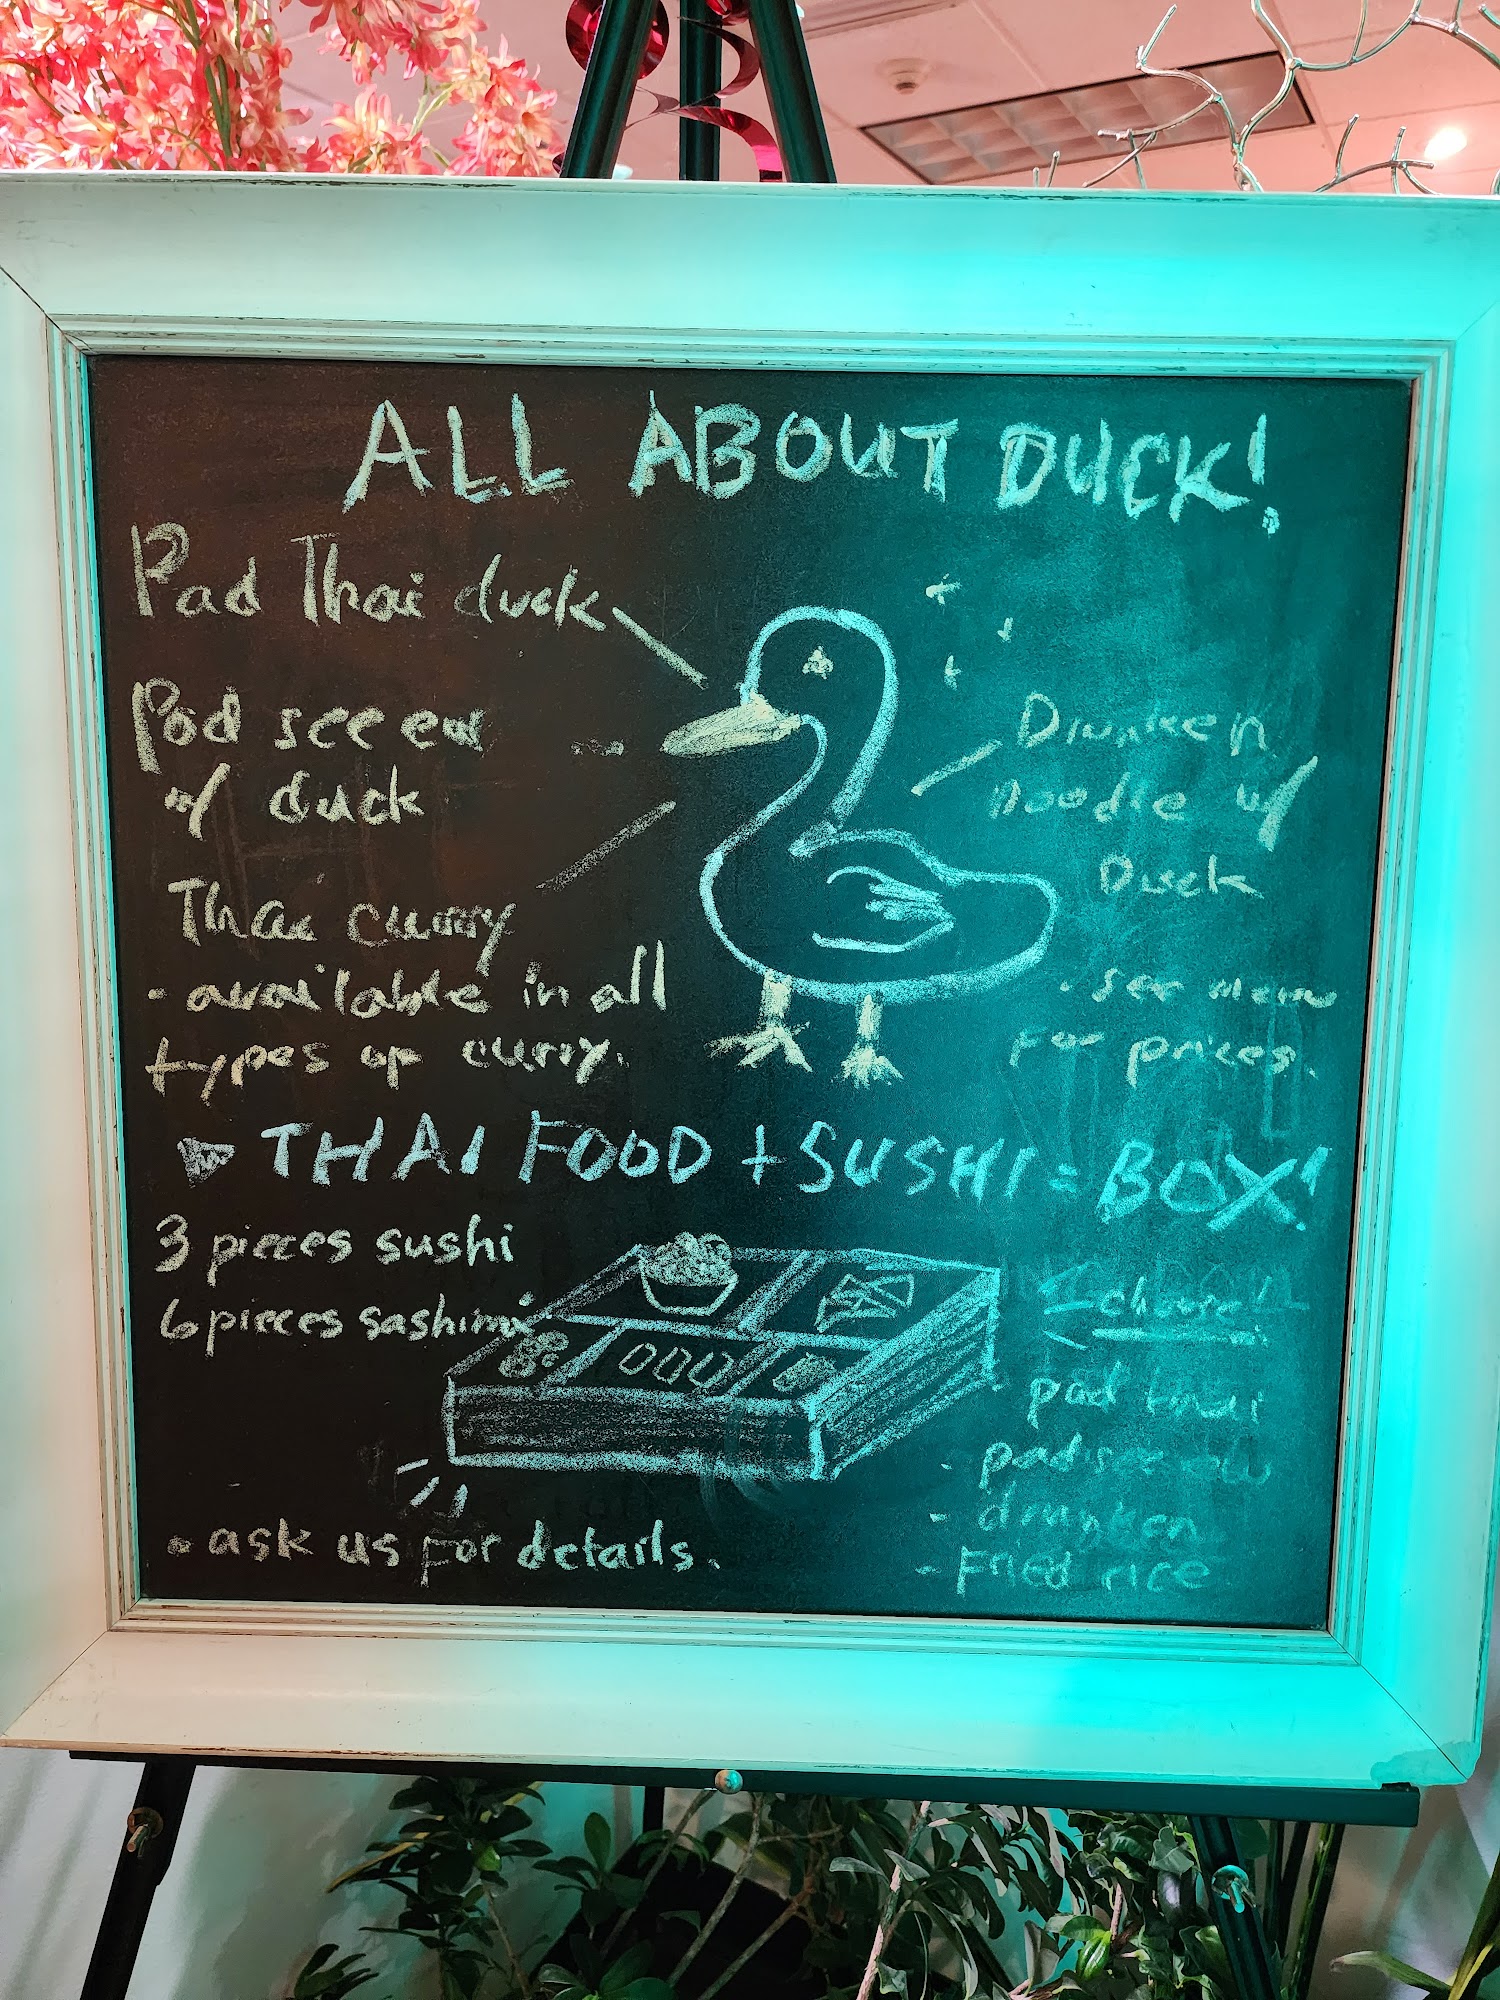 ALL ABOUT DUCK!
Pad Thai duck
Pad see ew
w/ duck
Thai curry
- available in all
types of curry.
Drunken
noodle w/
Duck
- see menu
for prices.
THAI FOOD + SUSHI = BOX!
3 pieces sushi
6 pieces sashimi
- ask us for details.
choose
- pad thai
- pad see ew
- drunken
- Fried rice